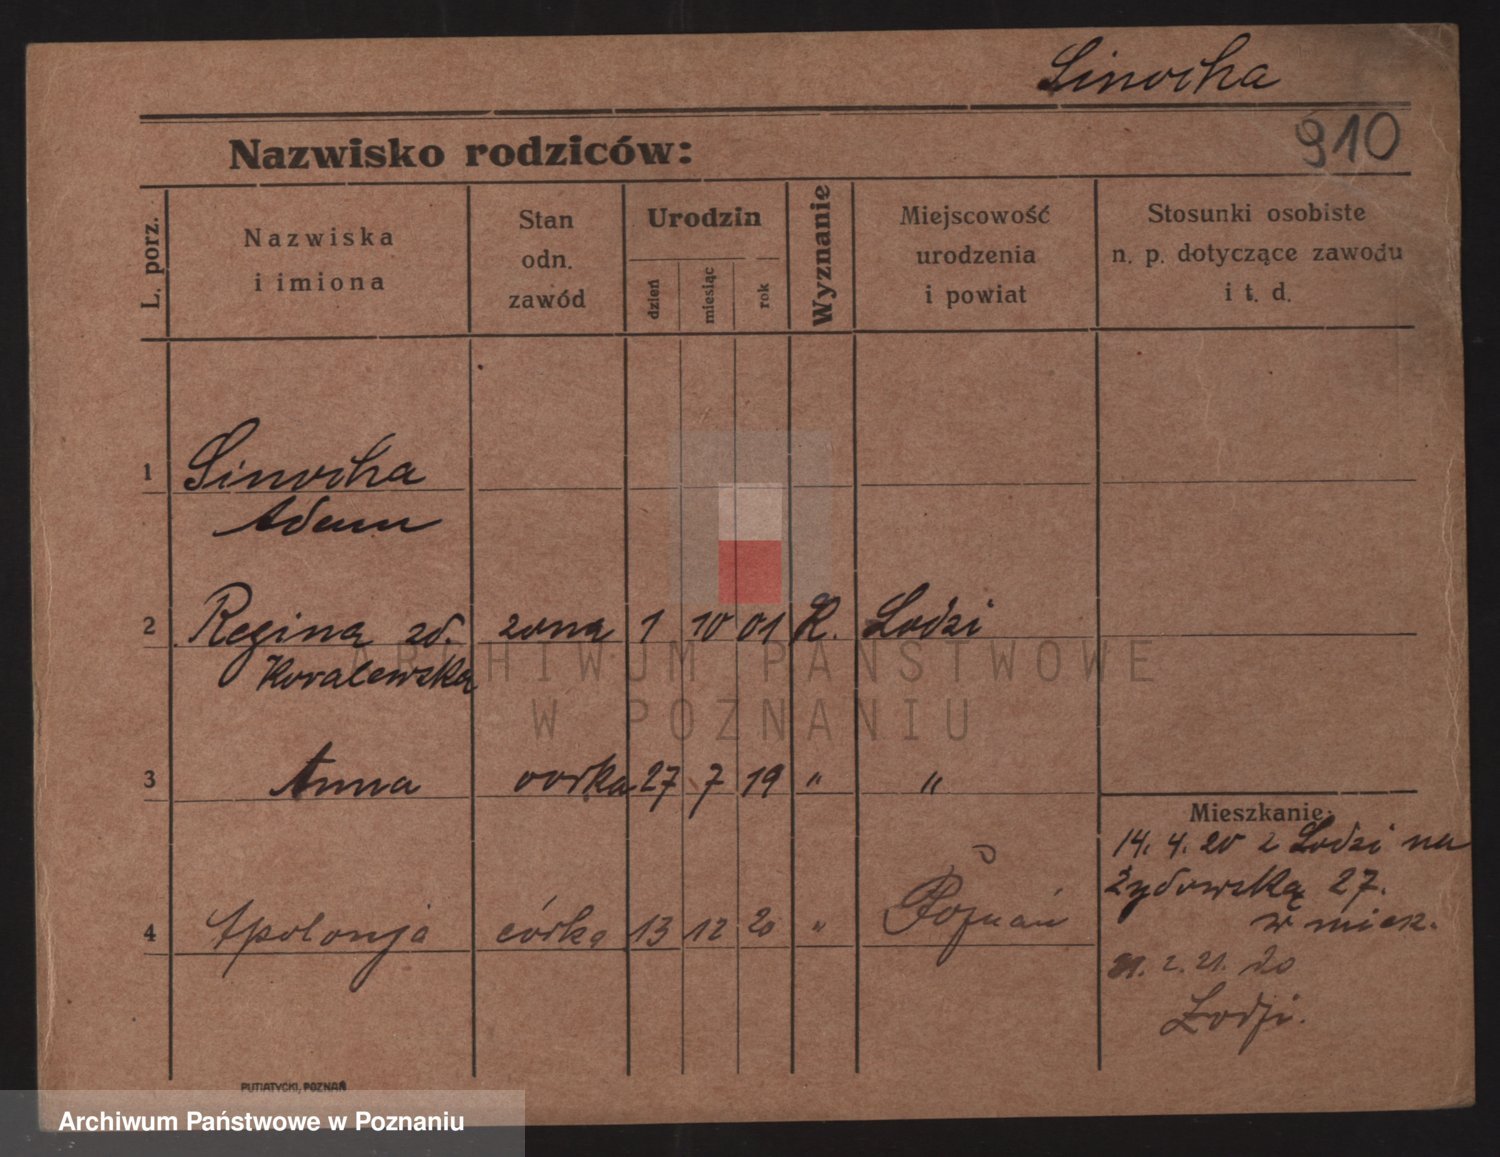 Sinocha
910
Nazwisko rodziców:
L. porz.
Nazwiska
i imiona
Stan
odn.
zawód
Urodzin
dzień
miesiąc
rok
Wyznanie
Miejscowość
urodzenia
i powiat
Stosunki osobiste
n. p. dotyczące zawodu
i t. d.
1 Sinocha
Adam
2 Regina zd. zona 1 10 01 K. Lodzi
Kovalewska
3 Anna corka 27 7 19 " "
Mieszkanie:
14. 4. 20 z Lodzi na
Żydowską 27.
4 Apolonja córka 13 12 20 " Poznań
21. 2. 21. do
Lodzi.
PUTIATYCKI, POZNAŃ
ARCHIWUM PAŃSTWOWE
W POZNANIU
Archiwum Państwowe w Poznaniu